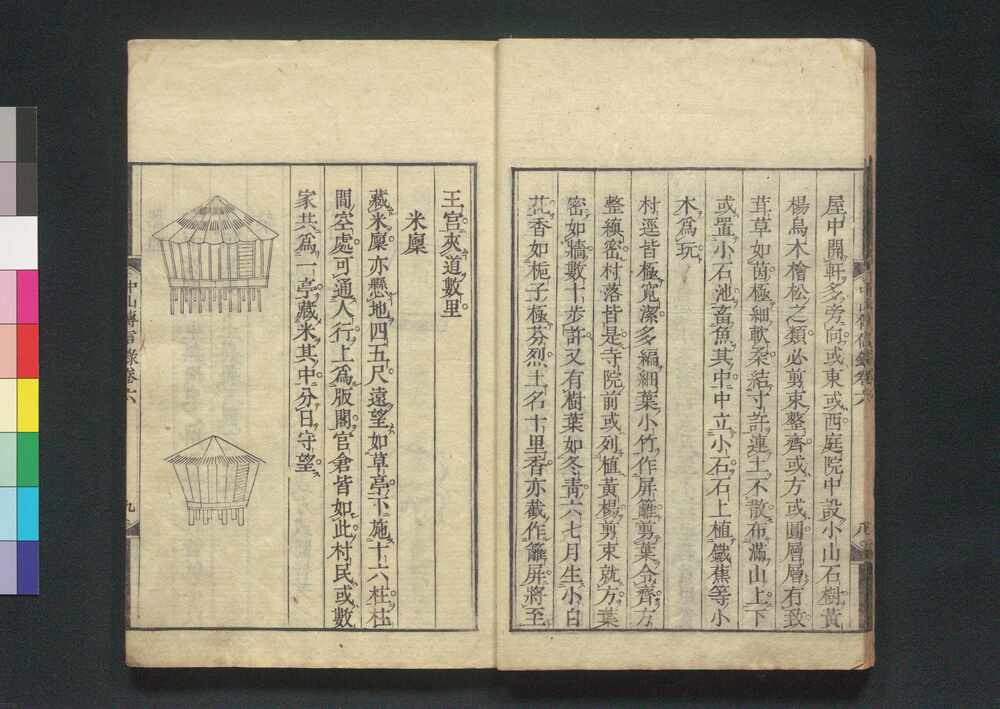 屋中開軒多旁向或東或西庭院中設小山石樹黃
楊烏木檜松之類必剪束整齊或方或圓層層有致
茸草如茵極細軟柔結寸許連土不散布滿山上下
或置小石池畜魚其中中立小石石上植鐵蕉等小
木爲玩
村逕皆極寬潔多編細葉小竹作屏籬剪葉令齊方
整縝密村落皆是寺院前或列植黃楊剪束就方葉
密如牆數十步許又有樹葉如冬靑六七月生小白
花香如梔子極芬烈土名十里香亦截作籬屏將至
王宮夾道數里
米廩
藏米廩亦懸地四五尺遠望如草亭下施十六柱柱
間空處可通人行上爲版閣官倉皆如此村民或數
家共爲一亭藏米其中分日守望
中山傳信錄卷六
九